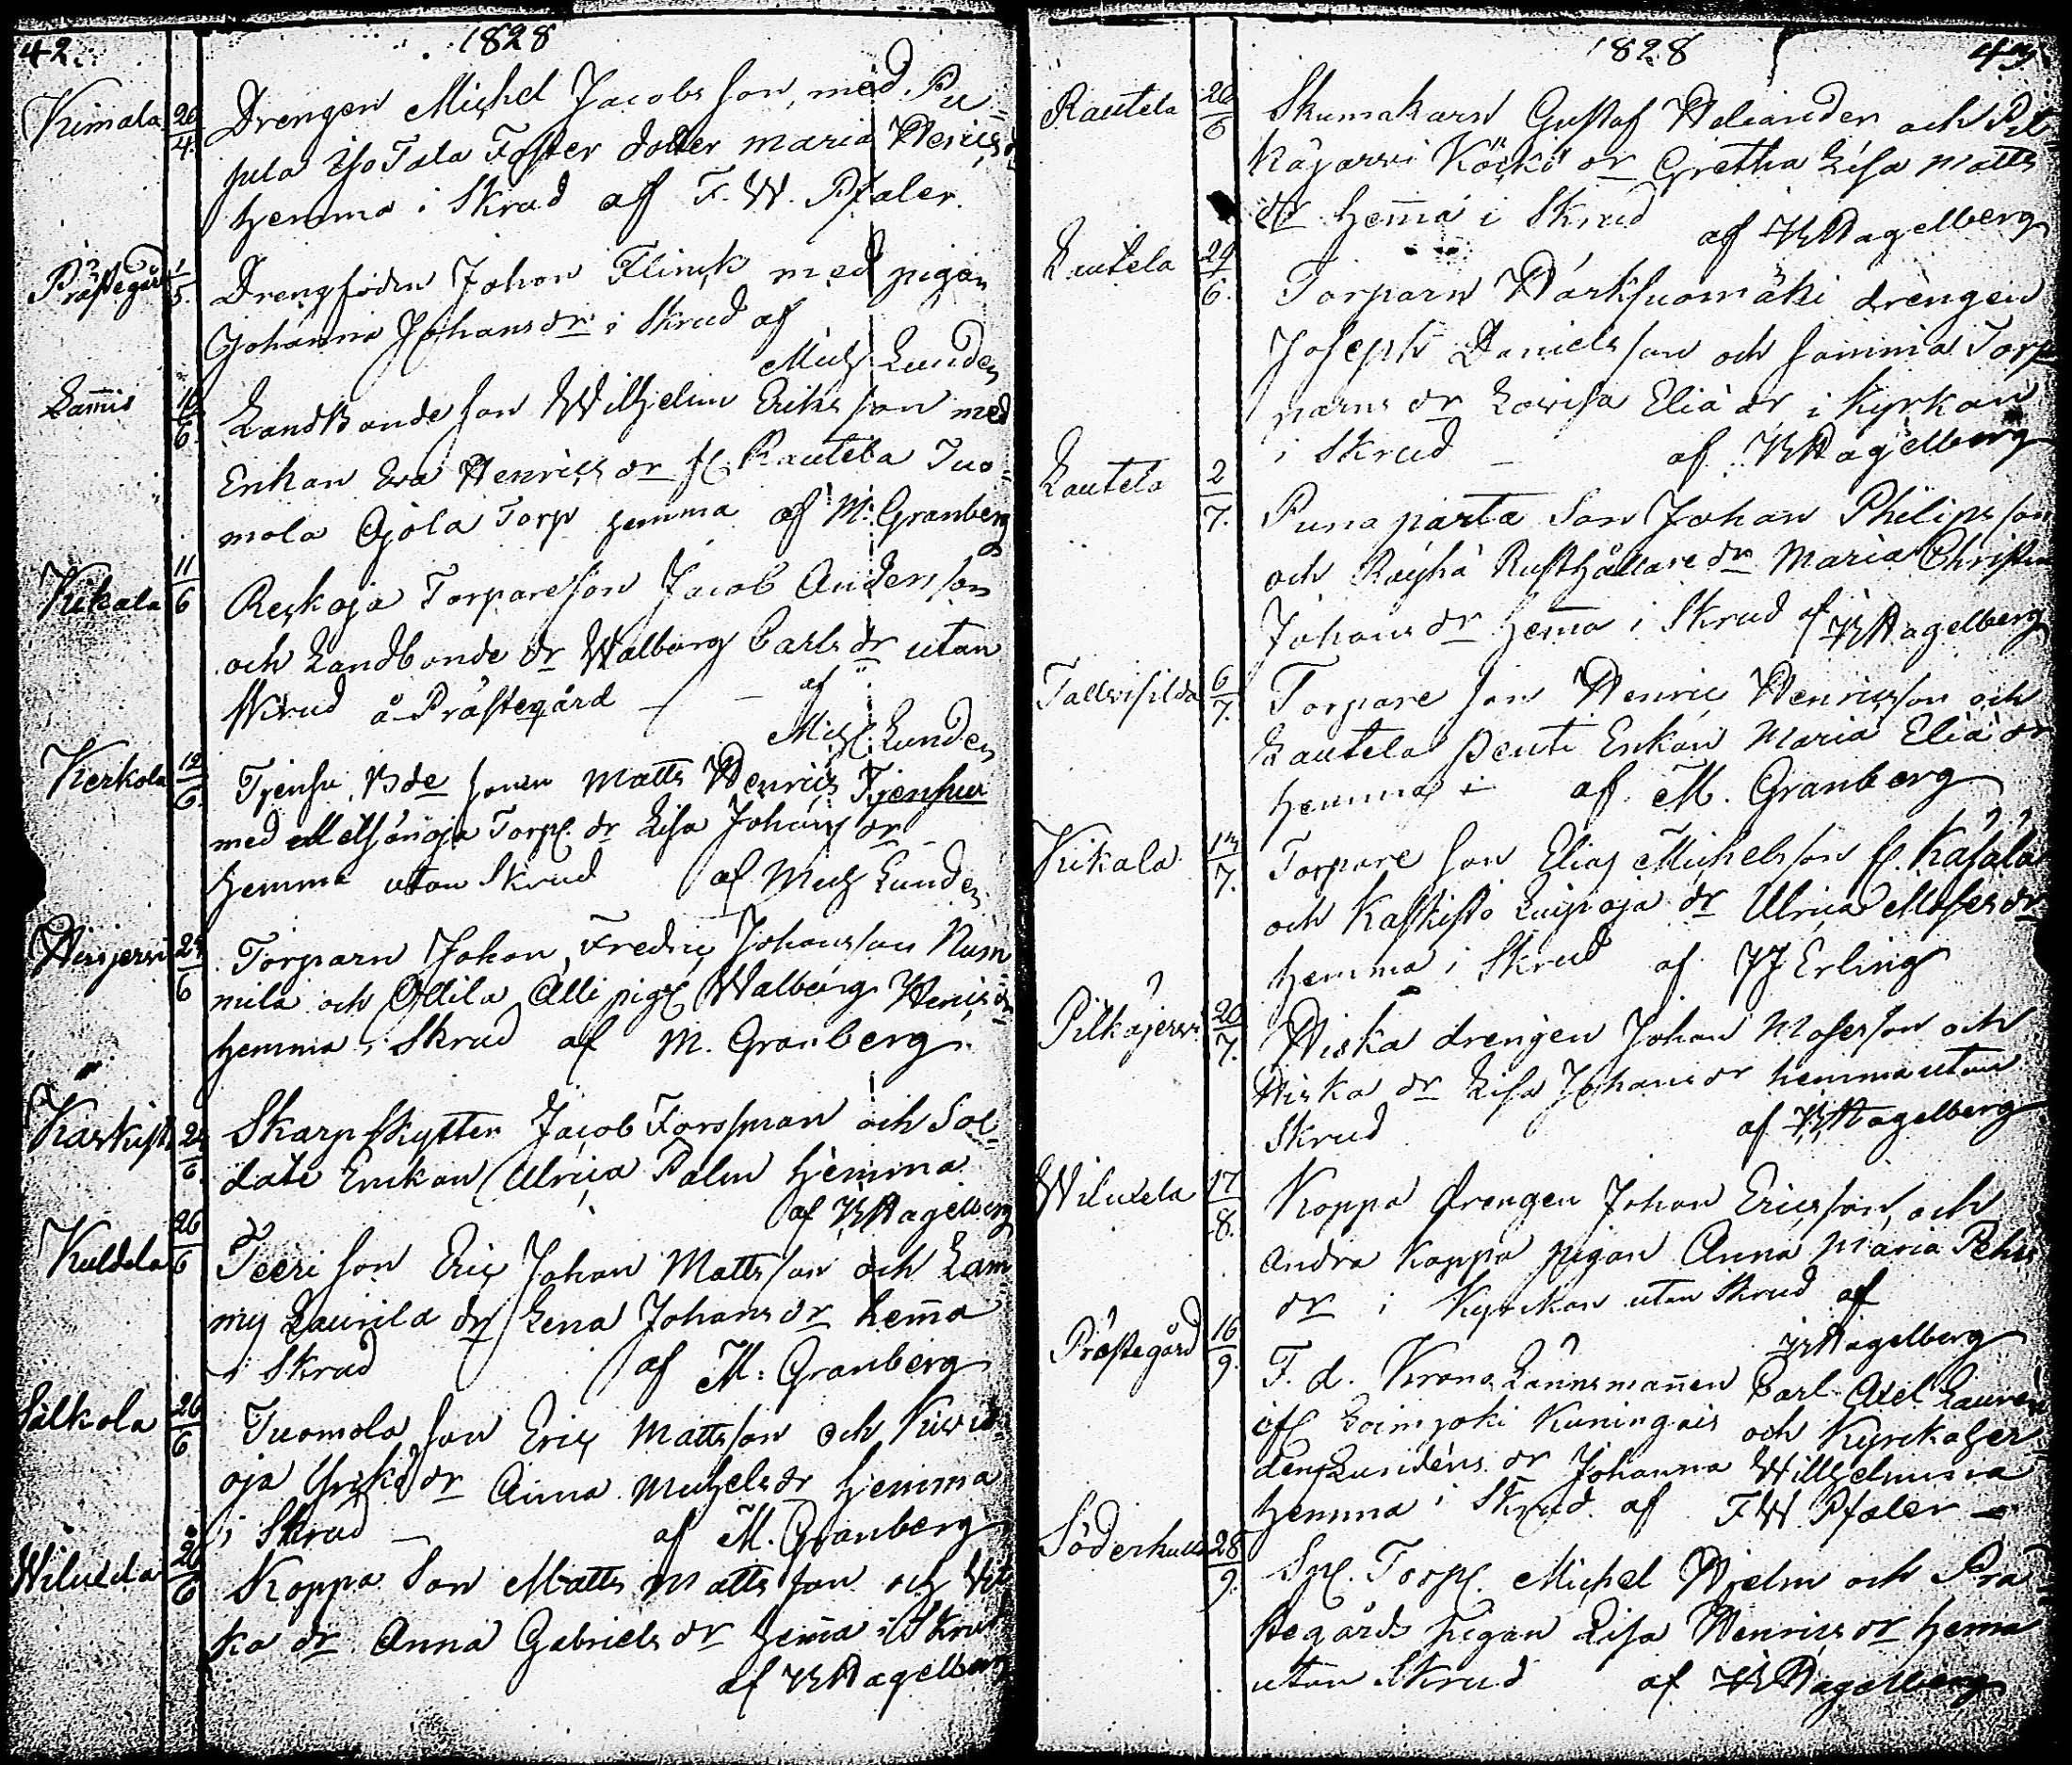 42. 1828
Kimala 20/4. Drengen Michel Jacobs son, med Pu-
jula Iso Tala Foster dotter Maria Henricsdr
hemma i Skrud af F. W. Pfaler.
Prästegård 1/5. Drengfodn Johan Flinck med pigan
Johanna Johansdr i Skrud af
Mich Lunden
Lammis 10/6. Landbonde son Wilhelm Eriks son med
Enkan Eva Henrics dr fr Rautela Tuo-
mola Ojola Torp hemma af M. Granberg
Kikala 11/6 Reskoja Torpareson Jacob Anders son
och Landbonde dr Walborg Carls dr utan
Skrud å Prästegård — af
Mich. Lunden
Kerkola 12/6. Tjensu Bde sonen Matts Henrics Tjensuu
med Metsänoja Torp. dr Lisa Johans dr
hemma utan Skrud af Mich Lunden
Hirsjerwi 24/6 Torparn Johan Fredric Johansson Num
mila och Ollila Alli pig. Walborg Henricsdr
hemma i Skrud af M. Granberg
Kaskisto 24/6. Skarpskytten Jacob Forssman och Sol-
date Enkan Ulrica Palm hemma
af KHagelberg
Kuldela 26/6 Teeri son Eric Johan Matts son och Lam
my Laurila dr Lena Johans dr hema
i Skrud af M. Granberg
Salkola 26/6 Tuomola son Eric Matts son och Kivid
oja Yrkö dr Anna Michels dr hemma
i Skrud — af M. Granberg
Wiluxela 26/6 Koppa Son Matts Matts son och Wis
ka dr Anna Gabriels dr hema i Skrud
af KHagelberg
1828 43
Rautela 20/6 Skumakarn Gustaf Welander och Pil
käjärwi Köckö dr Gretha Lisa Matts
dr hema i Skrud af KHagelberg
Lautela 29/6. Torparn Warksuomäki drengen
Joseph Daniels son och samma Torp
parns dr Lovisa Elia dr i Kyrkan
i Skrud — af KHagelberg
Lautela 2/7. Punaparta Son Johan Philips son
och Röyhä Rusthållare dr Maria Christina
Johans dr hema i Skrud af KHagelberg
Tallvisilda 6/7. Torpare son Henric Henricsson och
Lautela Penti Enkan Maria Elia dr
hemma i af M. Granberg
Kikala 13/7. Torpare son Elias Michels son fr. Käsälä
och Kaskisto Luipoja dr Ulrica Moses dr
hemma i Skrud af JJ Erling
Pilkäjerwi 20/7. Wiska drengen Johan Moses son och
Wiska dr Lisa Johans dr hemma utan
Skrud af KHagelberg
Wiluxela 17/8. Koppa drengen Johan Erics son, och
andra Koppa pigan Anna Maria Pehrs
dr i Kyrckan utan Skrud af
KHagelberg
Prästegård 16/9. F. d. Krono Länsmannen Carl Axel Lauren
if. Loimjoki Kuningois och Kyrckoher
den Lundéns dr Johanna Willhelmina
hemma i Skrud af F W Pfaler
Söderkulla 28/9. Sp. Torp. Michel Hjelm och Prä-
stegårds pigan Lisa Henrics dr hema
utan Skrud af KHagelberg